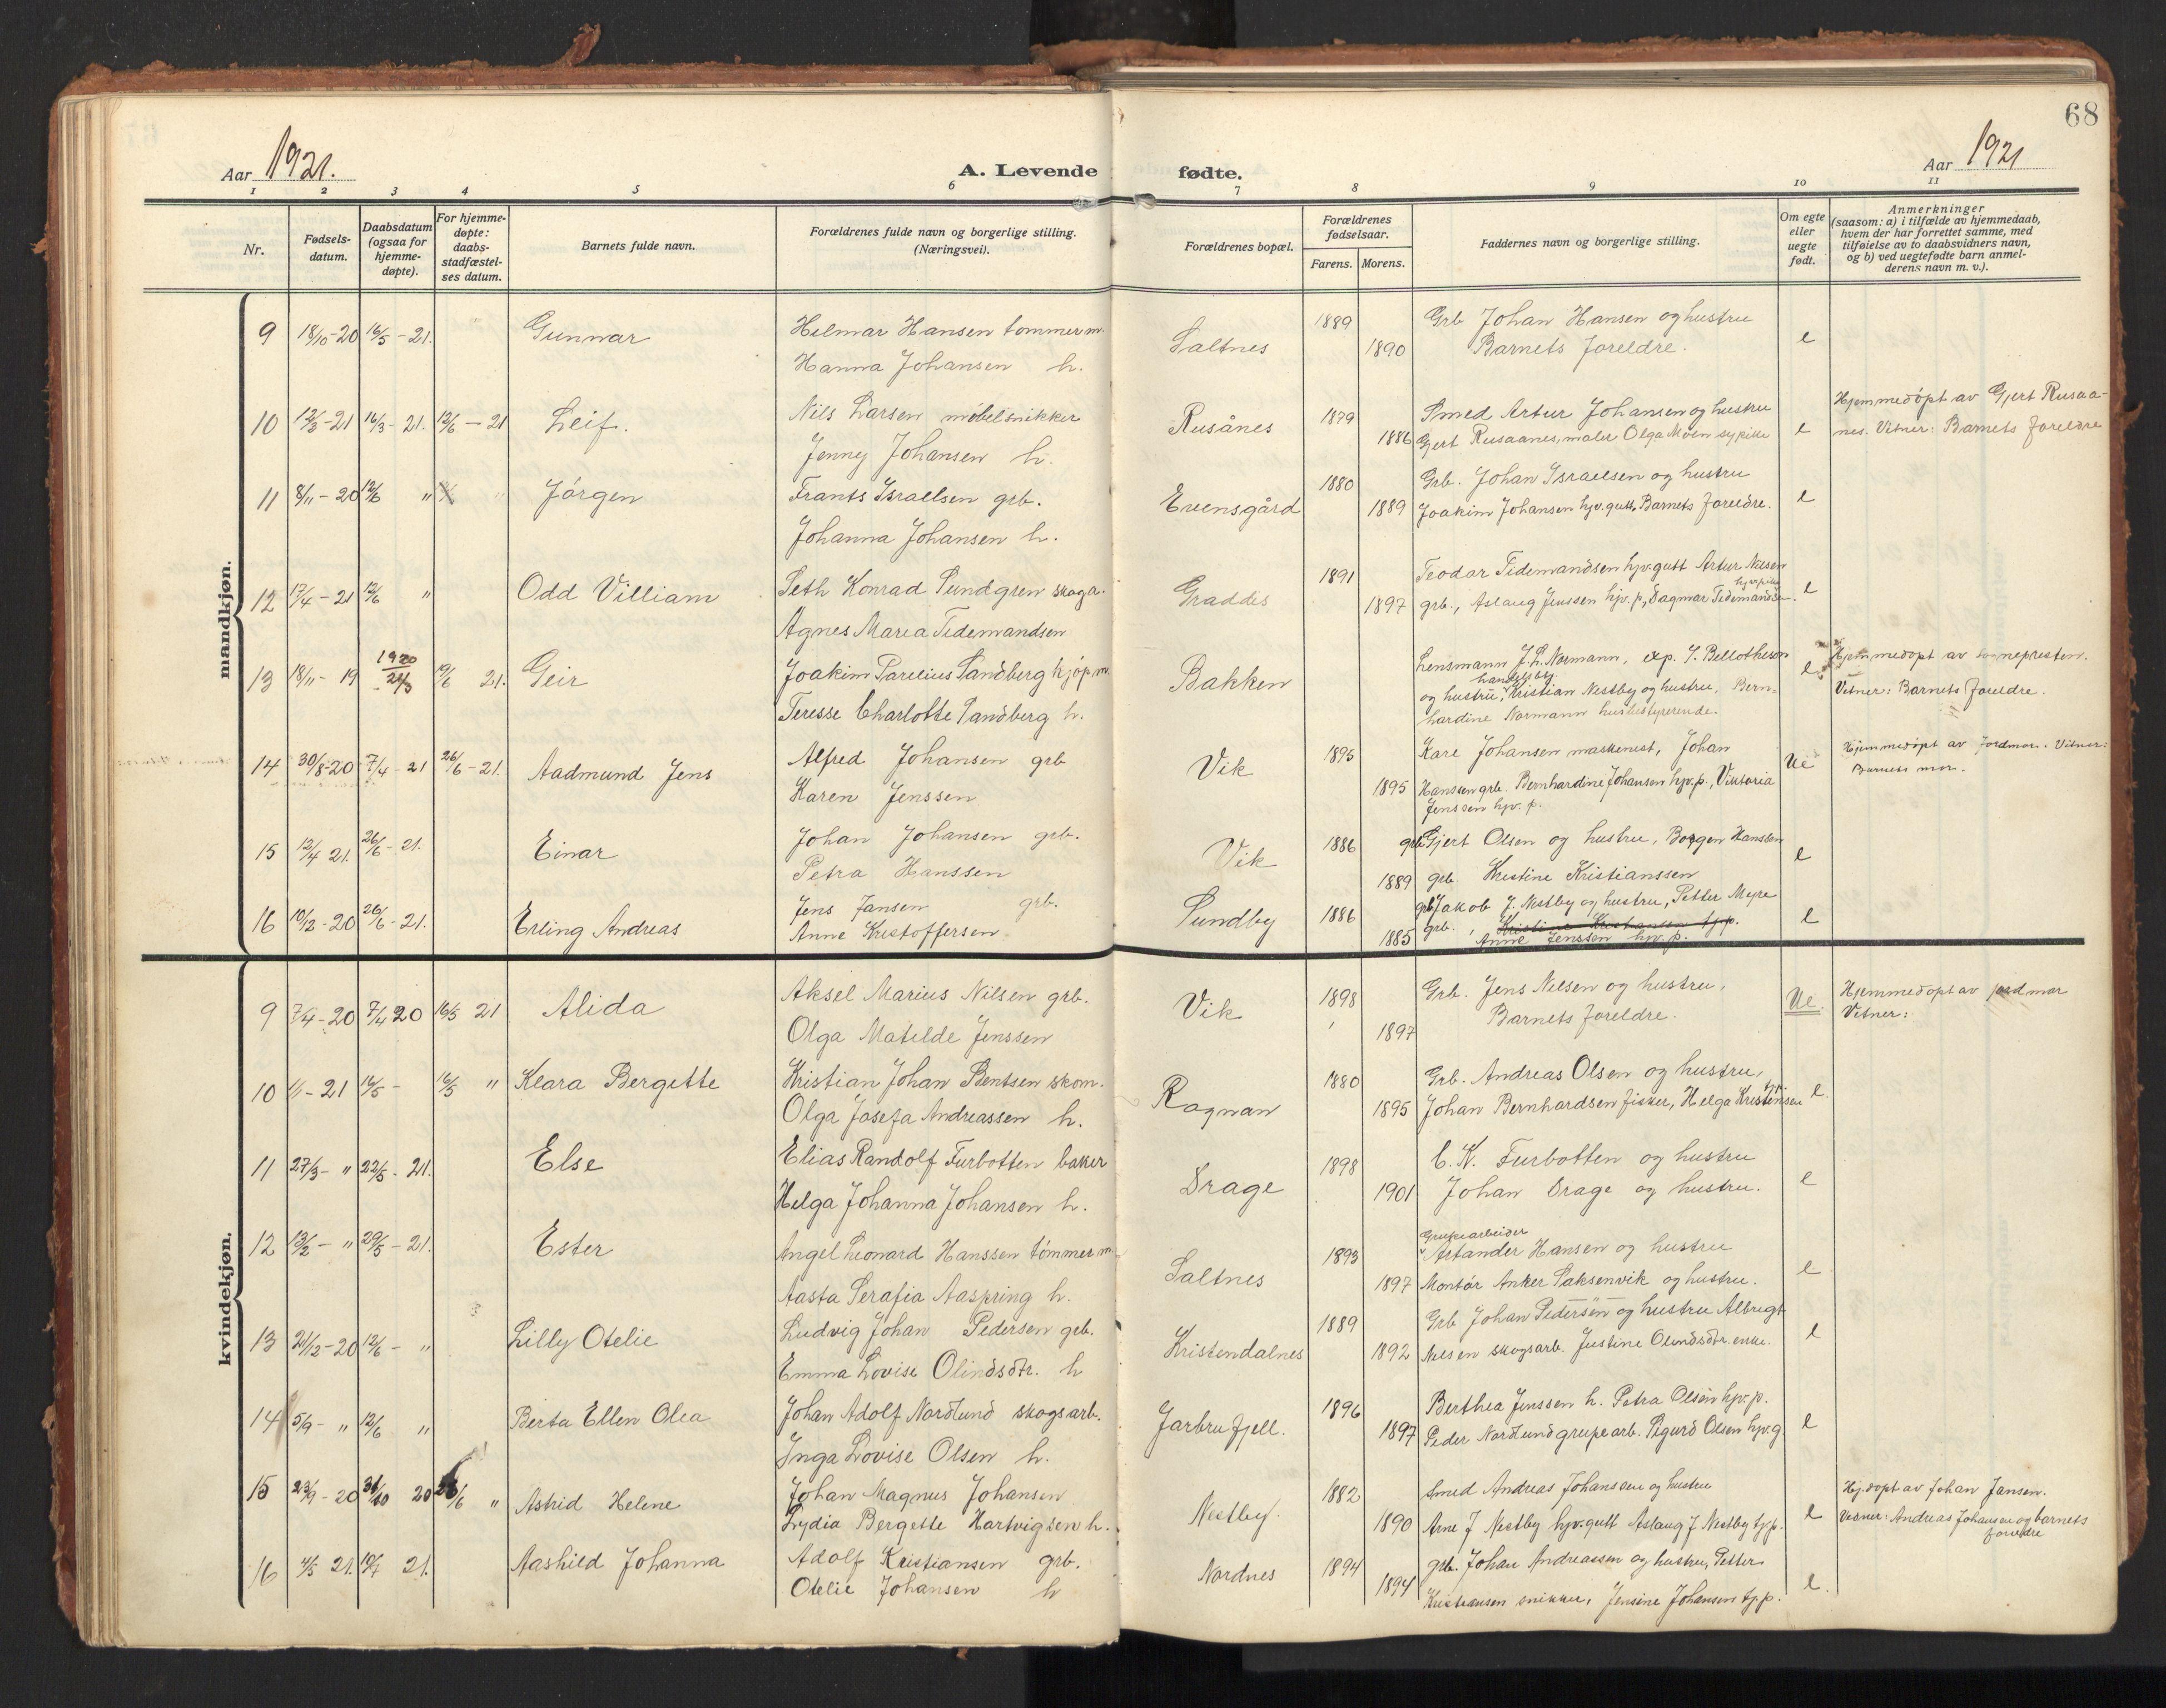 68
Aar 1921.
A. Levende fødte.
Aar 1921
1 2 3 4 5 6 7 8 9 10 11
Nr.
Fødsels-
datum.
Daabsdatum
(ogsaa for
hjemme-
døpte).
For hjemme-
døpte:
daabs-
stadfæstel-
ses datum.
Barnets fulde navn.
Forældrenes fulde navn og borgerlige stilling.
(Næringsvei).
Forældrenes bopæl.
Forældrenes
fødselsaar.
Farens. Morens.
Faddernes navn og borgerlige stilling.
Om egte
eller
uegte
født.
Anmerkninger
(saasom: a) i tilfælde av hjemmedaab,
hvem der har forrettet samme, med
tilføielse av to daabsvidners navn,
og b) ved uegtefødte barn anmel-
derens navn m. v.).
mandkjøn.
9 18/10-20 16/5-21. Gunnar
Hilmar Hansen tømmerm.
Hanna Johansen h.
Saltnes 1889 1890
Grb Johan Hansen og hustru
Barnets foreldre.
e
10 12/3-21 16/3-21. 12/6-21 Leif.
Nils Larsen møbelsnikker
Jenny Johansen h.
Rusånes 1879 1886
Smed Artur Johansen og hustru
Gjert Rusaanes, maler Olga Moen sypike
e
Hjemmedøpt av Gjert Rusaa-
nes. Vitner: Barnets foreldre
11 8/11-20 12/6 " Jørgen
Frants Israelsen grb.
Johanna Johansen h.
Evensgård 1880 1889
Grb. Johan Israelsen og hustru
Joakim Johansen hjv. gutt, Barnets foreldre.
e
12 17/4-21 12/6 " Odd Villiam
Seth Konrad Sundgren skoga.
Agnes Marea Tidemandsen
Graddis 1891 1897
Teodor Tidemandsen hjv. gutt Artur Nilsen
grb., Aslaug Jenssen hjv. p, Dagmar Tidemandsen hjv. pike
e
13 18/11-19 1920 24/3 19/6 21. Geir
Joakim Parelius Sandberg kjøpm.
Terese Charlotte Sandberg h.
Bakken
Lensmann J. L. Normann, exp. S. Bellotheson
og hustru, handelsbtj Kristian Nestby og hustru, Bern-
hardine Normann husbestyrerende.
e
Hjemmedøpt av sognepresten.
Vitner: Barnets foreldre.
14 30/8-20 7/4-21 26/6-21. Aadmund Jens
Alfred Johansen grb
Karen Jenssen
Vik 1895 1895
Kare Johansen maskenist, Johan
Hanssen grb. Bernhardine Johansen hjv. p., Viktoria
Jenssen hjv. p.
Ue
Hjemmedøpt av Jordmor. Vitner:
Barnets mor.
15 12/4 21. 26/6-21. Einar
Johan Johansen grb.
Petra Hanssen
Vik 1886 1889
grb. Gjert Olsen og hustru, Borgen Hanssen
grb. Kristine Kristianssen
e
16 10/12-20 26/6-21. Erling Andreas
Jens Jansen grb.
Anne Kristoffersen
Sundby 1886 1885
grb. Jakob J. Nestby og hustru, Petter Myre
grb., Kristine Kristiansen tjp.
Anne Jenssen hjv. p.
e
kvindekjøn.
9 7/4-20 7/4 20 16/5 21 Alida
Aksel Marius Nilsen grb.
Olga Matilde Jenssen
Vik 1898 1897
Grb. Jens Nilsen og hustru,
Barnets foreldre.
Ue.
Hjemmedøpt av jordmor
Vitner:
10 21 16/5 - 16/5 " Klara Bergitte
Kristian Johan Bentsen skom.
Olga Josefa Andreassen h.
Rognan 1880 1895
Grb. Andreas Olsen og hustru,
Johan Bernhardsen fisker, Helga Kristinsen
e.
11 27/3- " 22/5-21. Else
Elias Randolf Furbotten baker
Helga Johanna Johansen h.
Drage 1898 1901
C. K. Furbotten og hustru
Johan Drage og hustru.
e
12 13/2- " 29/5-21. Ester
Angel Leonard Hanssen tømmerm.
Aasta Serafia Aaspring h.
Saltnes 1893 1897
Grupearbeider
Astander Hansen og hustru
Montør Anker Saksenvik og hustru.
e
13 21/12-20 12/6- " Lilly Otelie
Ludvig Johan Pedersen grb.
Emma Lovise Olindsdtr. h
Kristendalnes 1889 1892
Grb Johan Pedersen og hustru Albregt
Nilsen skogsarb. Justine Olindsdtr. enke.
e
14 5/9- " 12/6 " Berta Ellen Olea
Johan Adolf Nordlund skogsarb.
Inga Lovise Olsen h.
Jarbrufjell. 1896 1897
Berthea Jenssen h. Petra Olsen hjv. p.
Peder Nordlund grupearb. Sigurd Olsen hjv. g
e
15 23/9-20 31/10 20 26/6 " Astrid Helene
Johan Magnus Johansen
Lydia Bergette Hartvigsen h.
Nestby. 1882 1890
Smed Andreas Johanssen og hustru
Arne J Nestby hjv. gutt Aslaug J Nestby tj. p.
e
Hj. døpt av Johan Jansen.
Vitner: Andreas Johansen og barnets
foreldre
16 4/5 21. 10/7 21. Aashild Johanna
Adolf Kristiansen grb.
Otelie Johansen h
Nordnes 1894 1894
grb. Johan Andreassen og hustru, Petter
Kristiansen snikker, Jensine Johansen tj. p.
e.